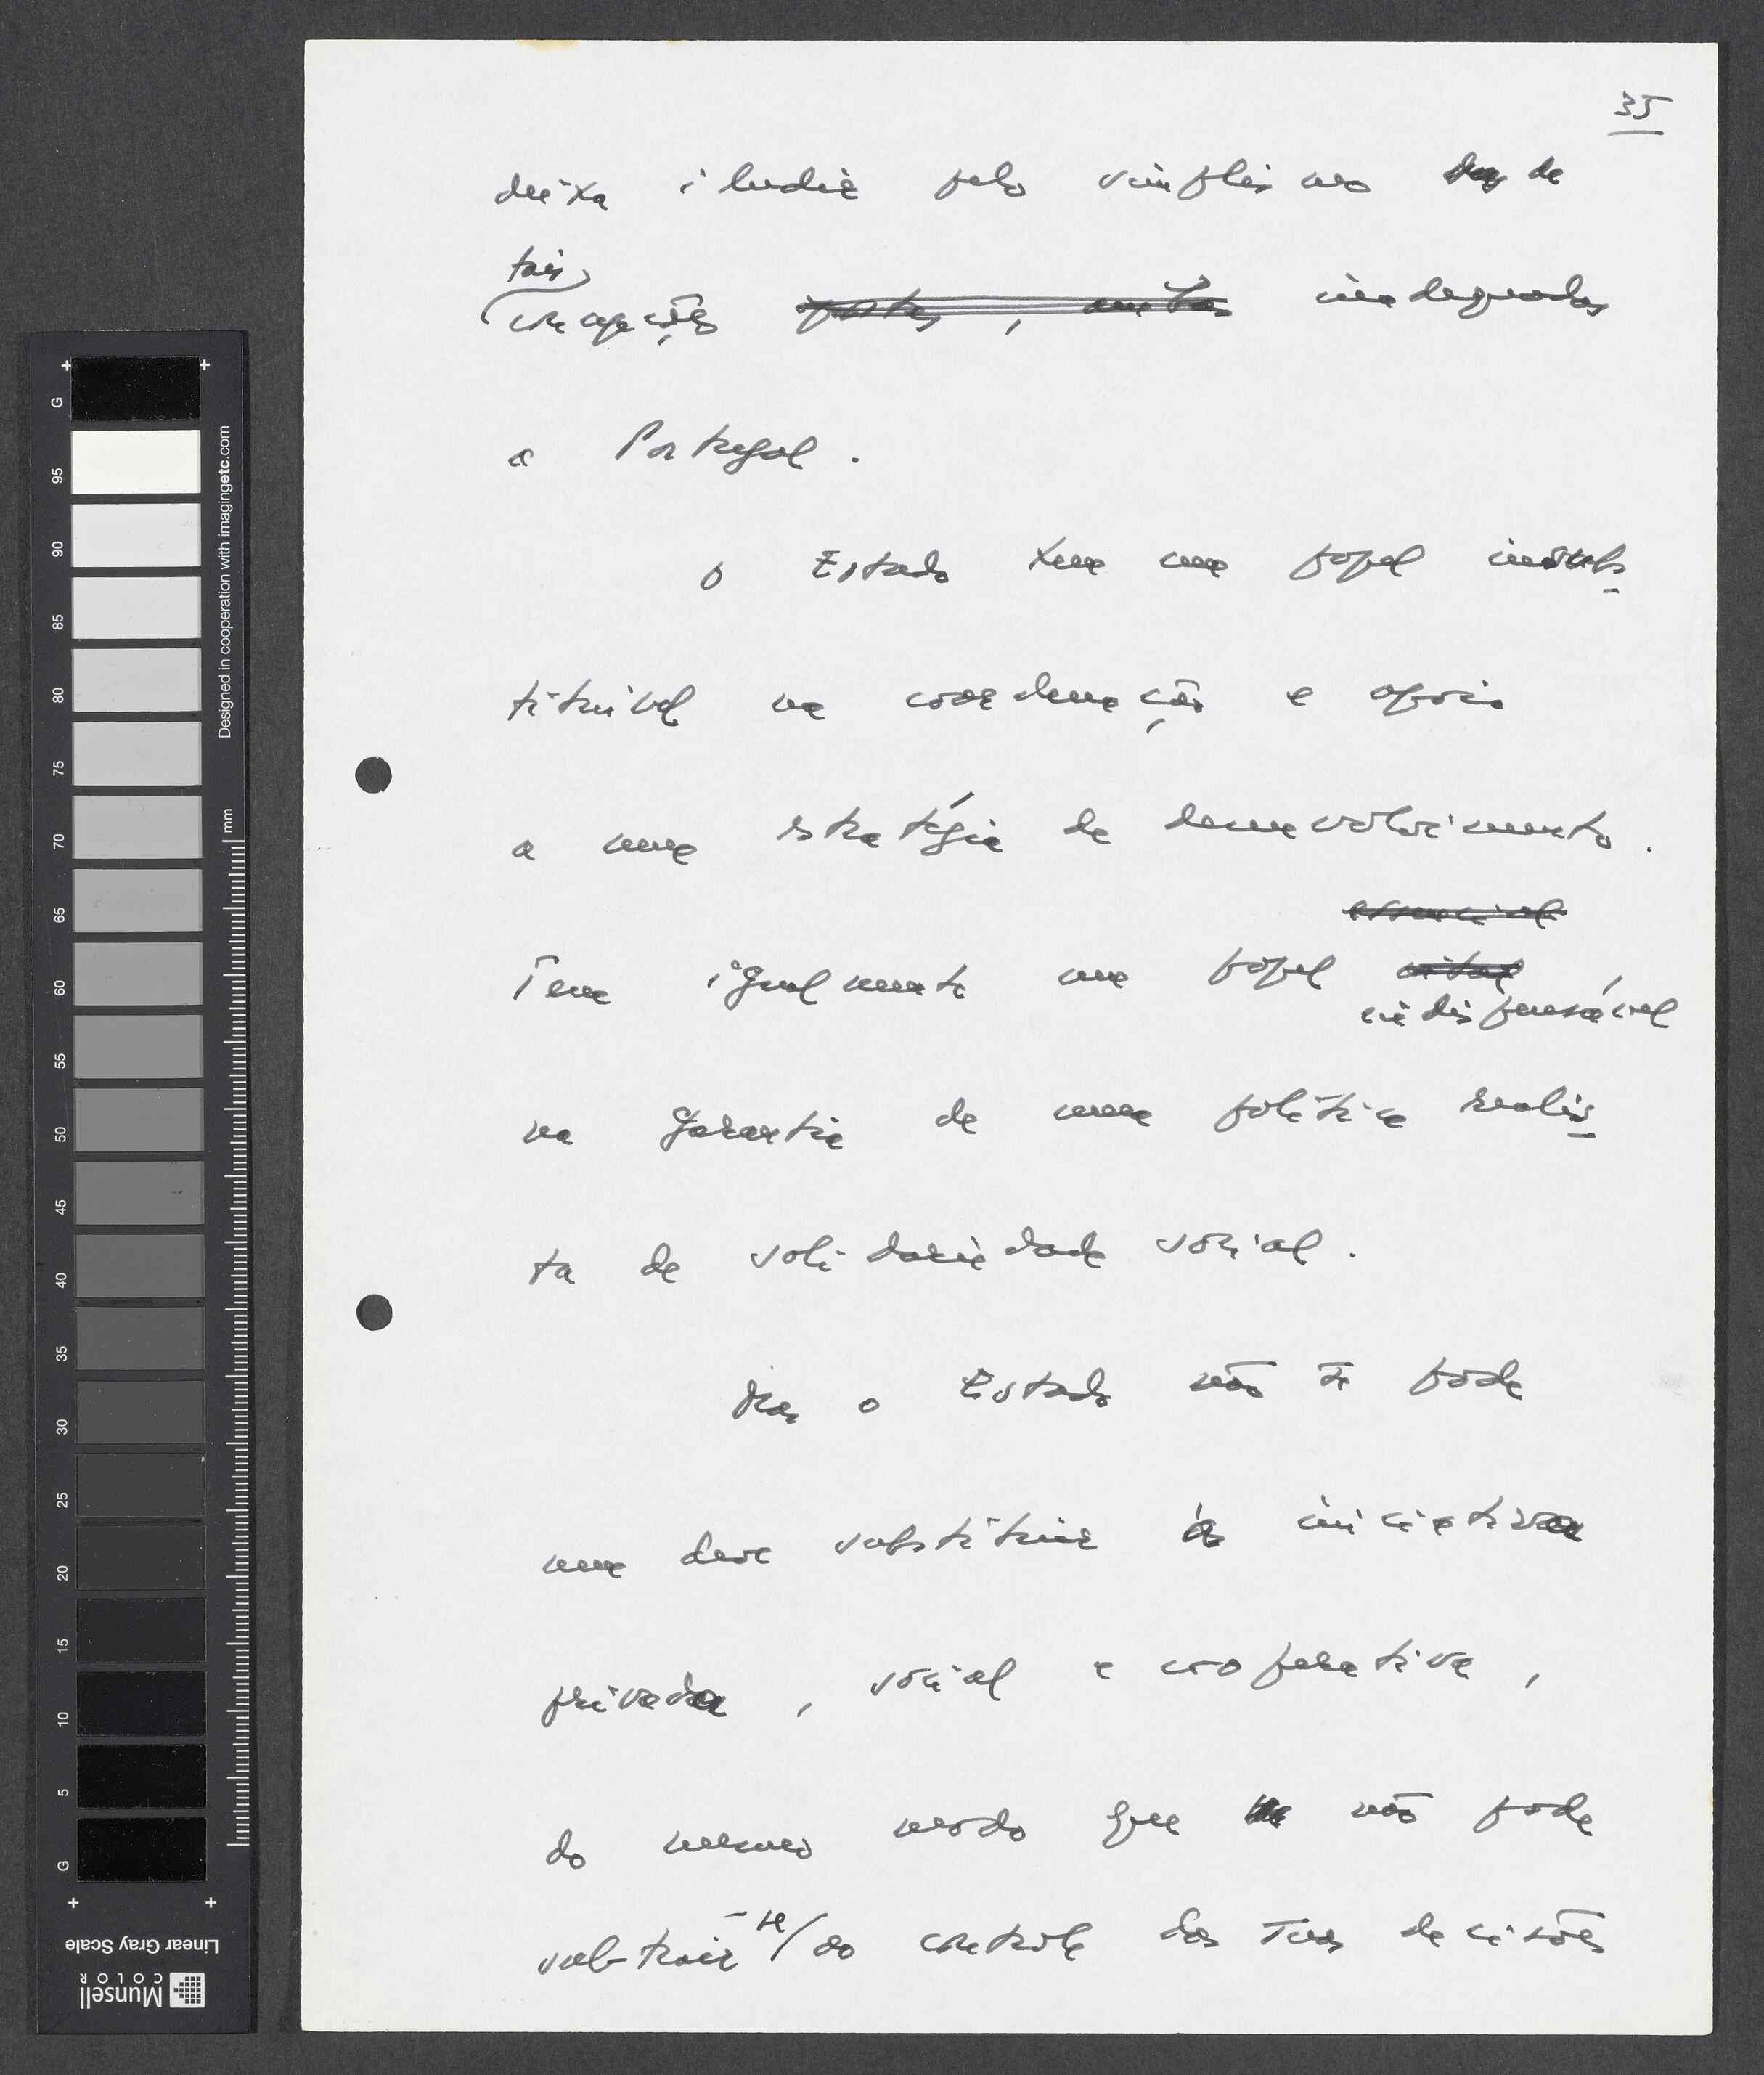 35
deixa iludir pelo simplismo de
tais
concepções inadequadas
a Portugal.
O Estado tem um papel insubs
tituível na coordenação e apoio
a uma estratégia de desenvolvimento.
essencial
Tem igualmente um papel vital,
indispensável
na garantia de uma política realis
ta de solidariedade social.
Mas o Estado não pode
nem deve substituir a iniciativa
privada, social e cooperativa,
do mesmo modo que não pode
subtrair-se/ao controle das suas decisões
G
95
90
85
80
75
70
65
60
55
50
45
40
35
30
25
20
15
10
5
G
mm
Designed in cooperation with imagingetc.com
Linear Gray Scale
Munsell
COLOR